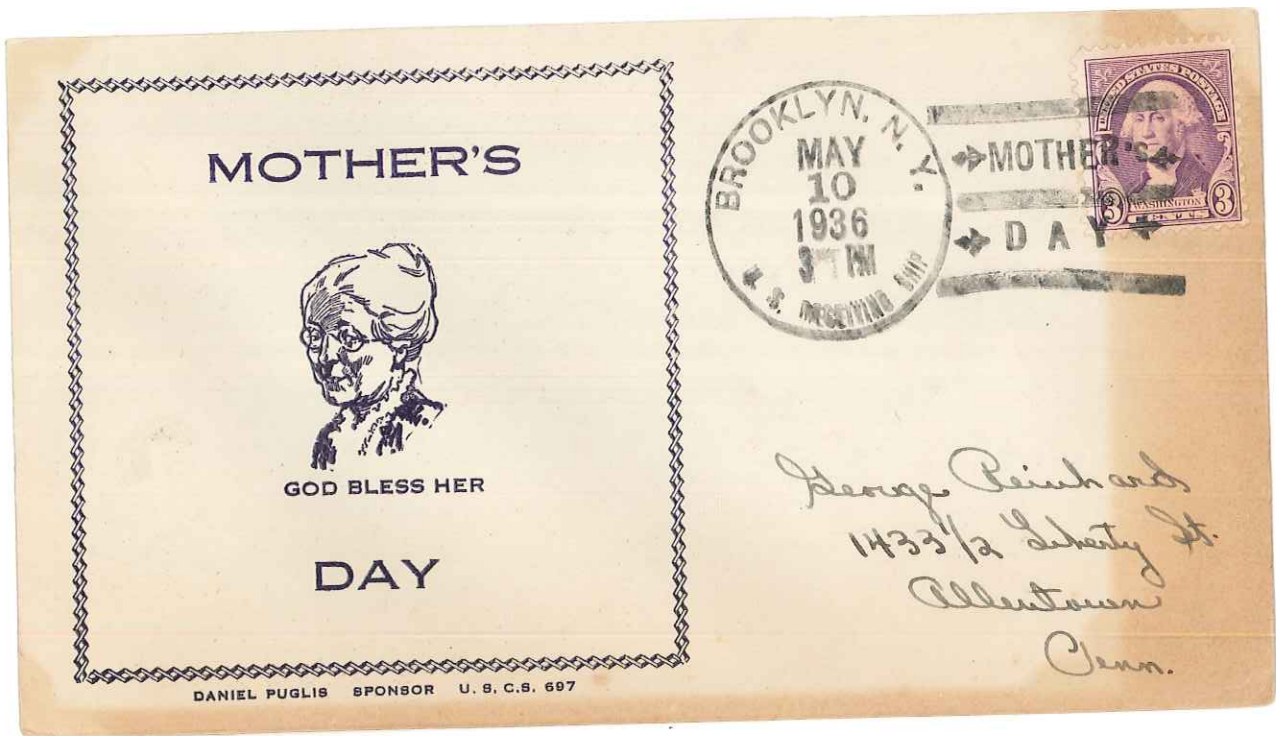 MOTHER'S
GOD BLESS HER
DAY
DANIEL PUGLIS SPONSOR U. S. C. S. 697
BROOKLYN, N. Y.
MAY
10
1936
PM
U. S. RECEIVING SHIP
MOTHER'S
DAY
UNITED STATES POSTAGE
3 WASHINGTON 3
CENTS
George Reinhard
1433 1/2 Liberty St.
Allentown
Penn.